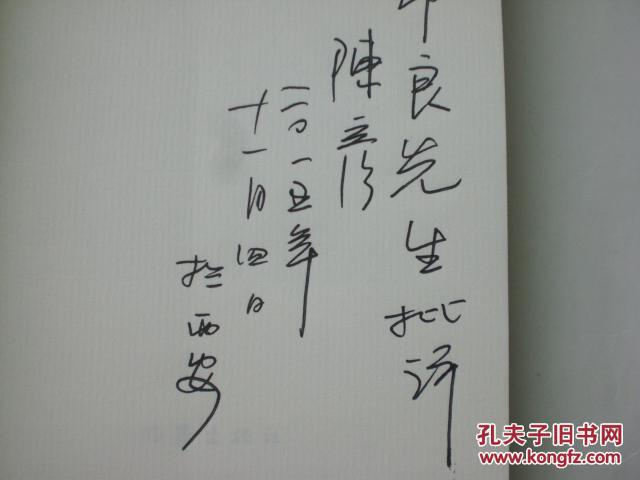 良先生批评
陳彦
二〇一五年
十一月四日
於西安
孔夫子旧书网
www.kongfz.com